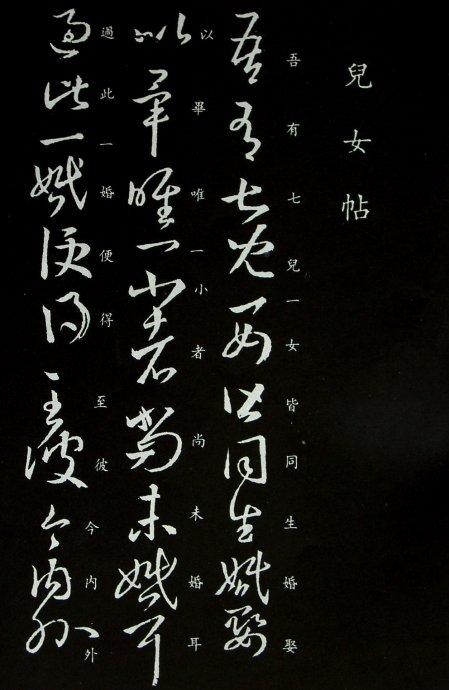 兒女帖
吾有七兒一女皆同生婚娶
以畢唯一小者尚未婚耳
過此一婚便得至彼今內外